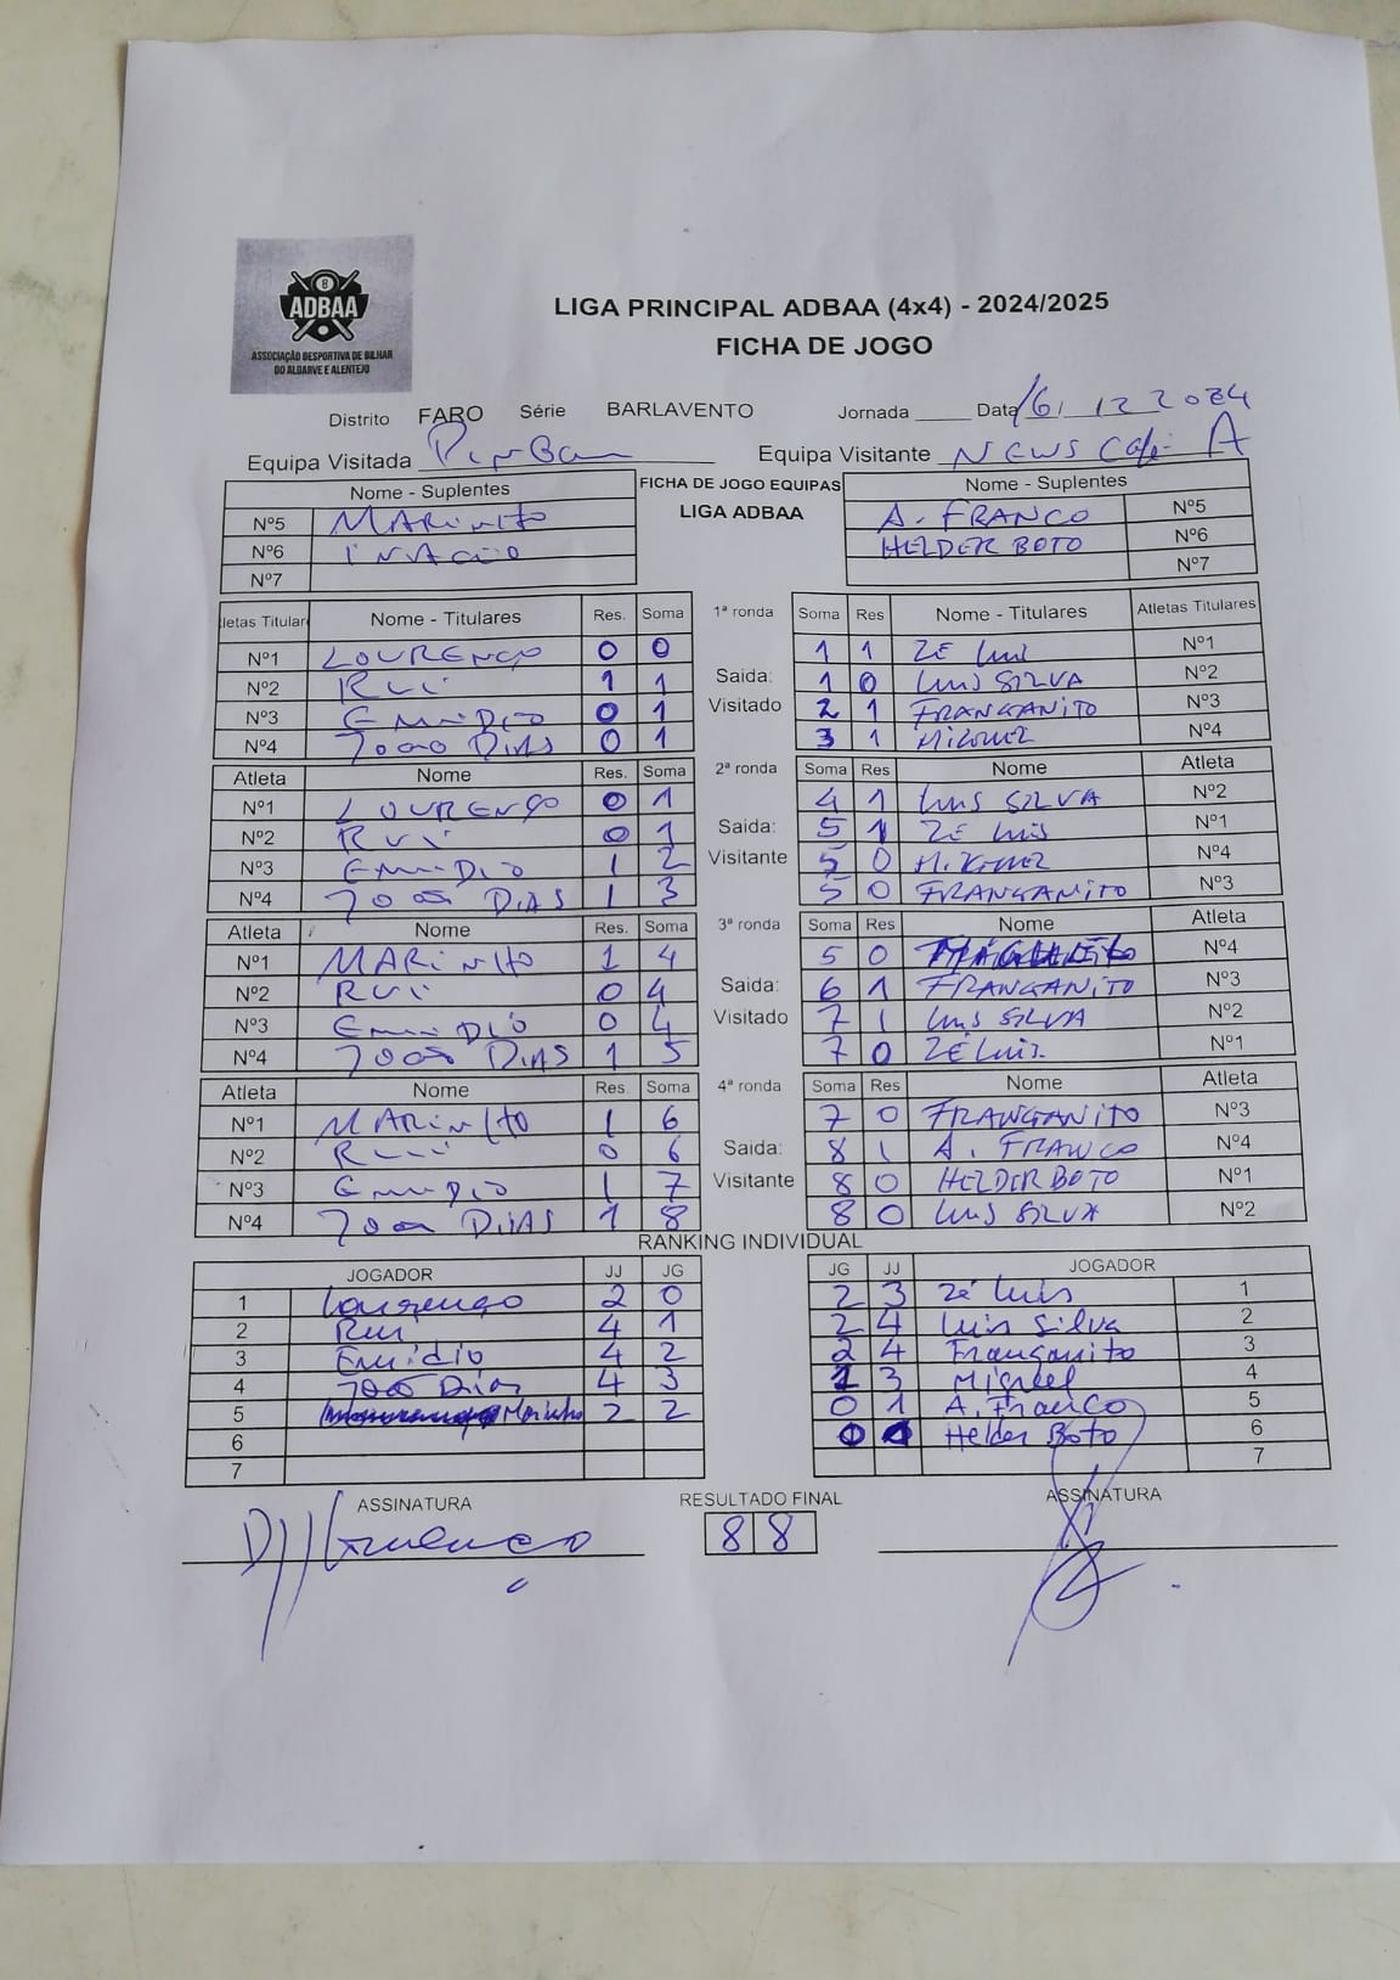 8
ADBAA
ASSOCIAÇÃO DESPORTIVA DE BILHAR
DO ALGARVE E ALENTEJO
LIGA PRINCIPAL ADBAA (4x4) - 2024/2025
FICHA DE JOGO
Distrito FARO Série BARLAVENTO Jornada ____ Data 16/ 12 2024
Equipa Visitada PinBar Equipa Visitante NEWS Café A
Nome - Suplentes FICHA DE JOGO EQUIPAS Nome - Suplentes
LIGA ADBAA
Nº5 MARINHO A. FRANCO Nº5
Nº6 INACIO HELDER BOTO Nº6
Nº7 Nº7
letas Titular Nome - Titulares Res. Soma 1ª ronda Soma Res Nome - Titulares Atletas Titulares
Nº1 LOURENÇO 0 0 1 1 ZÉ Luis Nº1
Nº2 RUI 1 1 Saida: 1 0 LUIS SILVA Nº2
Nº3 EMIDIO 0 1 Visitado 2 1 FRANGANITO Nº3
Nº4 JOAO DIAS 0 1 3 1 MIGUEL Nº4
Atleta Nome Res. Soma 2ª ronda Soma Res Nome Atleta
Nº1 LOURENÇO 0 1 4 1 LUIS SILVA Nº2
Nº2 RUI 0 1 Saida: 5 1 ZÉ LUIS Nº1
Nº3 EMIDIO 1 2 Visitante 5 0 MIGUEL Nº4
Nº4 JOAO DIAS 1 3 5 0 FRANGANITO Nº3
Atleta Nome Res. Soma 3ª ronda Soma Res Nome Atleta
Nº1 MARINHO 1 4 5 0 Nº4
Nº2 RUI 0 4 Saida: 6 1 FRANGANITO Nº3
Nº3 EMIDIO 0 4 Visitado 7 1 LUIS SILVA Nº2
Nº4 JOAO DIAS 1 5 7 0 ZÉ LUIS. Nº1
Atleta Nome Res. Soma 4ª ronda Soma Res Nome Atleta
Nº1 MARINHO 1 6 7 0 FRANGANITO Nº3
Nº2 RUI 0 6 Saida: 8 1 A. FRANCO Nº4
Nº3 EMIDIO 1 7 Visitante 8 0 HELDER BOTO Nº1
Nº4 JOAO DIAS 1 8 8 0 LUIS SILVA Nº2
RANKING INDIVIDUAL
JOGADOR JJ JG JG JJ JOGADOR
1 Lourenço 2 0 2 3 Zé Luis 1
2 Rui 4 1 2 4 Luis Silva 2
3 Emídio 4 2 2 4 Franganito 3
4 JOAO Dias 4 3 3 Miguel 4
5 Marinho 2 2 0 1 A. Franco 5
6 Helder Boto 6
7 7
ASSINATURA RESULTADO FINAL ASSINATURA
8 8